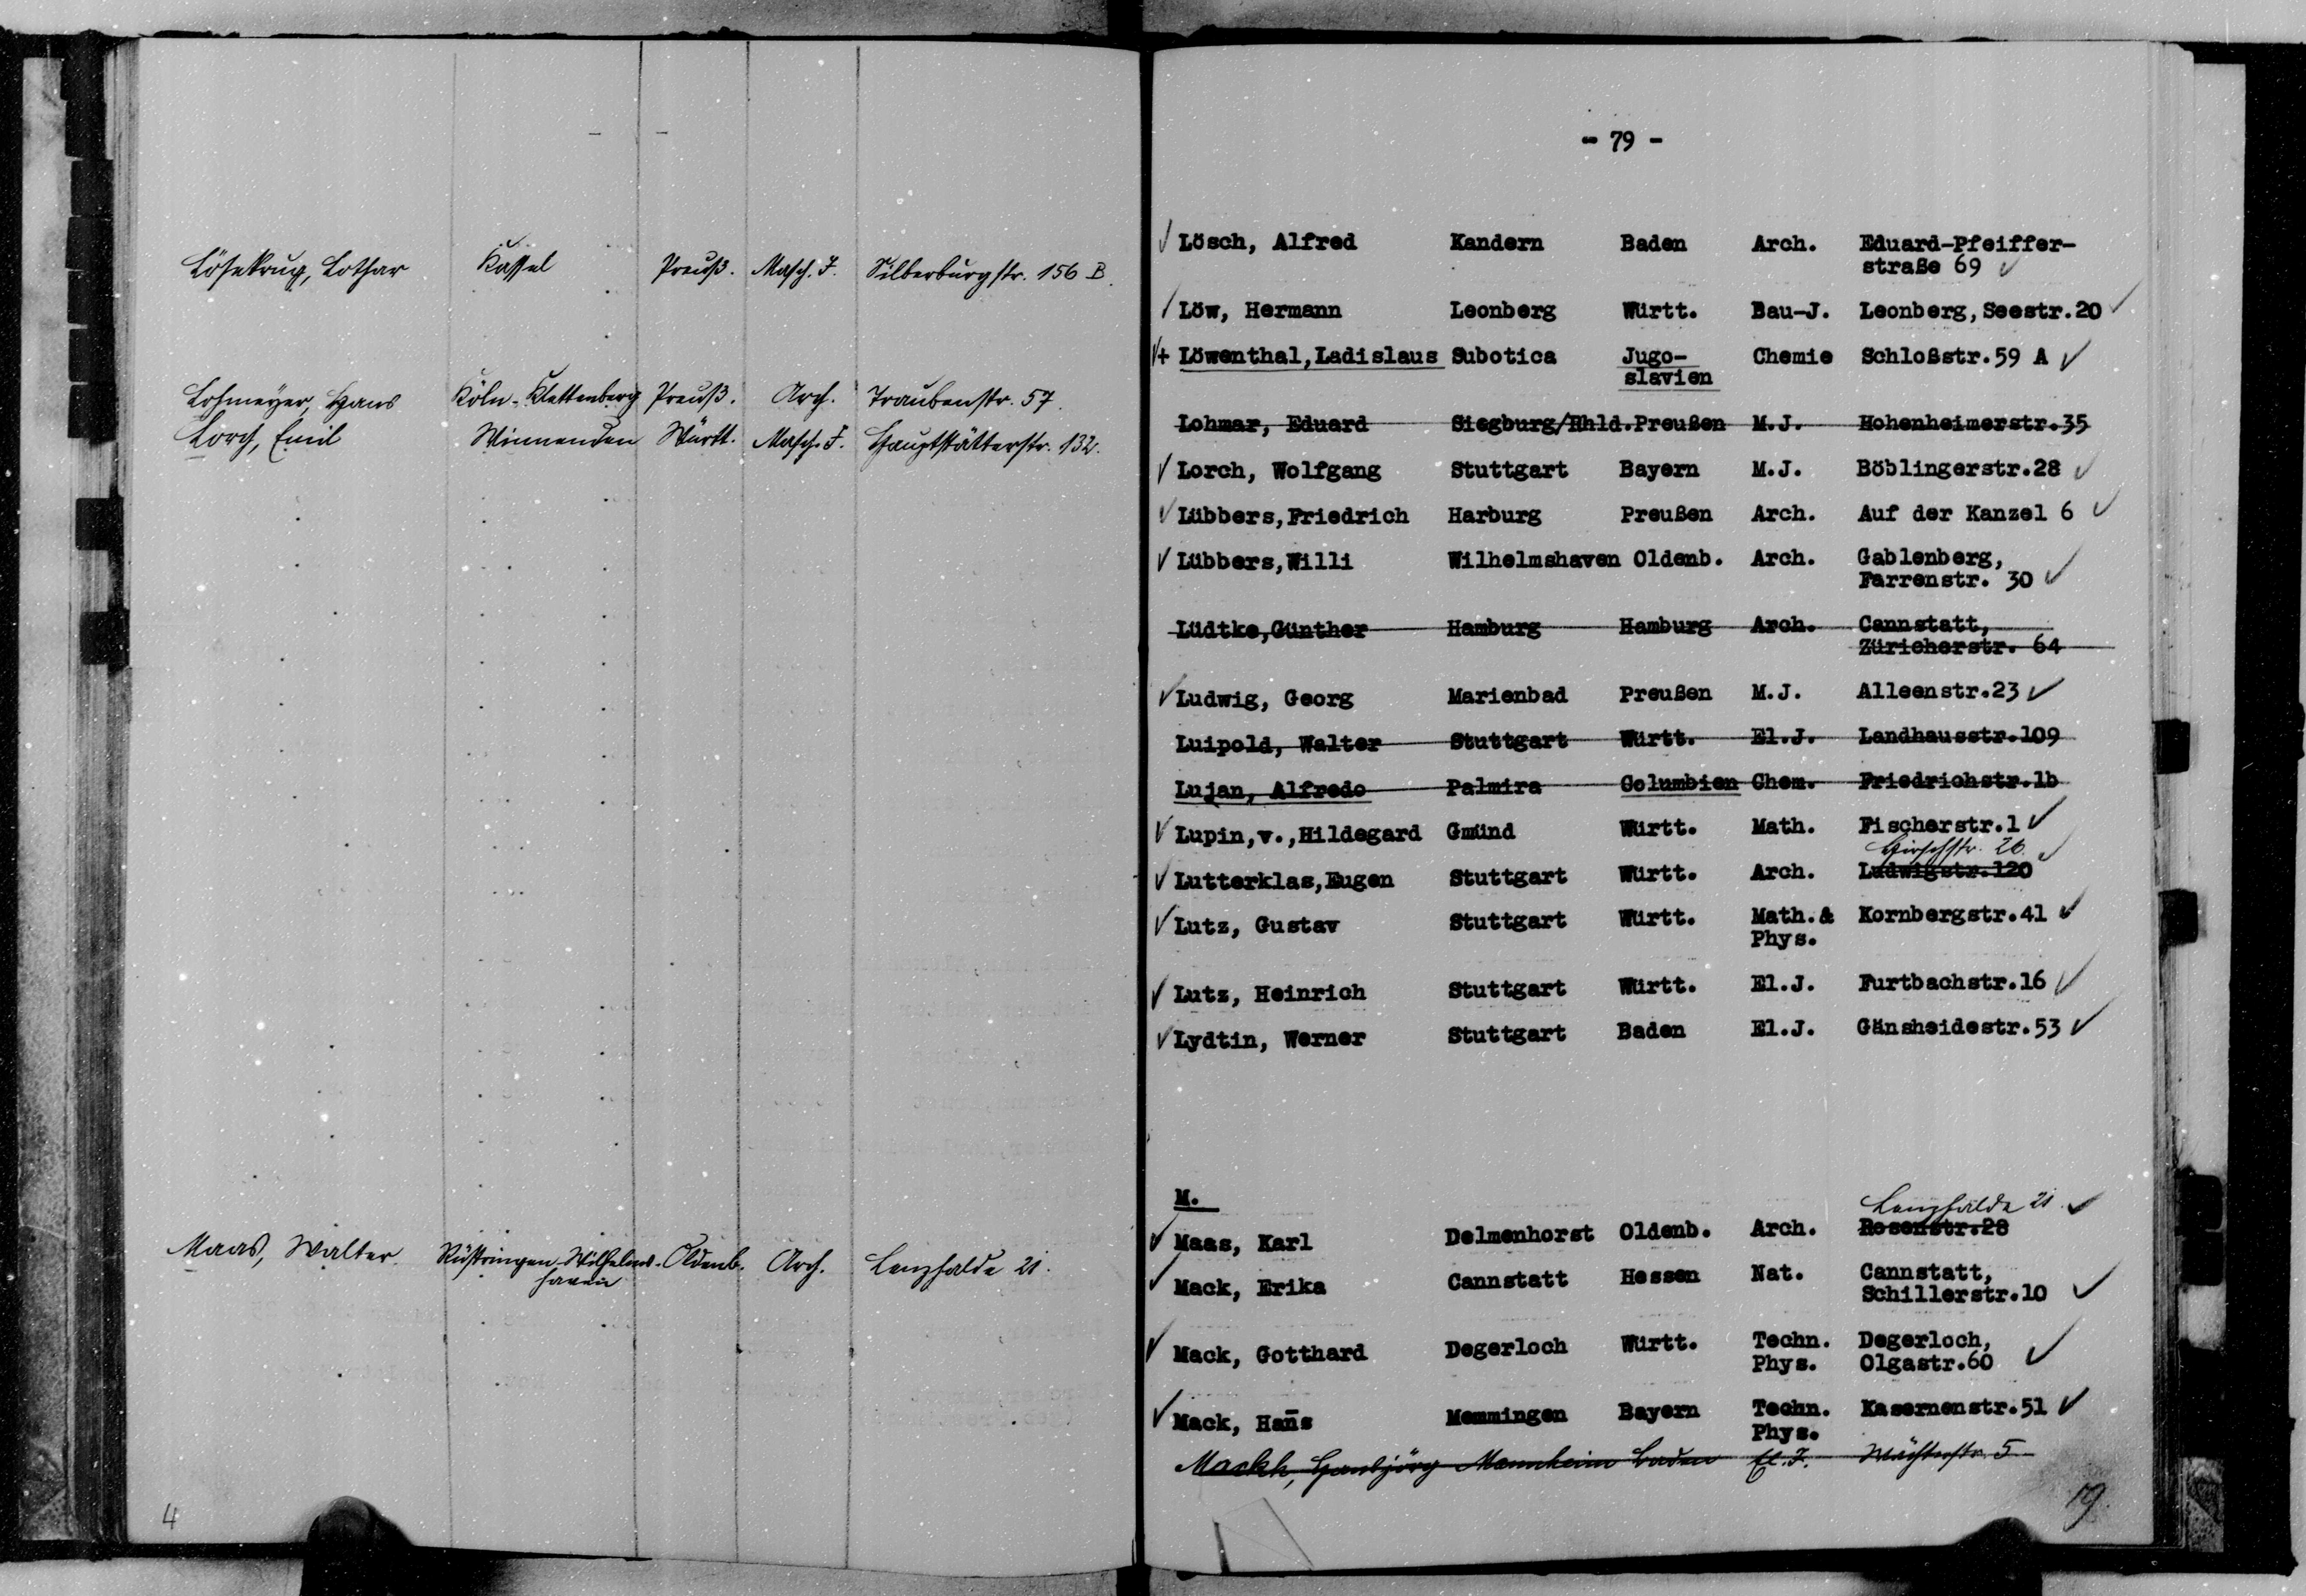 Lösekrug, Lothar Kassel Preuß. Masch. I. Silberburgstr. 156 B.
Lohmeyer, Hans Köln-Klettenberg Preuß. Arch. Traubenstr. 57.
Lorch, Emil Winnenden Württ. Masch. I. Hauptstätterstr. 132.
Maas, Walter. Rüstringen-Wilhelms- Oldenb. Arch. Lenzhalde 21.
haven
4
- 79 -
Lösch, Alfred Kandern Baden Arch. Eduard-Pfeiffer-
straße 69
Löw, Hermann Leonberg Württ. Bau-J. Leonberg, Seestr.20
+ Löwenthal,Ladislaus Subotica Jugo- Chemie Schloßstr.59 A
slavien
Lohmar, Eduard Siegburg/Rhld. Preußen M.J. Hohenheimerstr.35
Lorch, Wolfgang Stuttgart Bayern M.J. Böblingerstr.28
Lübbers,Friedrich Harburg Preußen Arch. Auf der Kanzel 6
Lübbers,Willi Wilhelmshaven Oldenb. Arch. Gablenberg,
Farrenstr. 30
Lüdtke,Günther Hamburg Hamburg Arch. Cannstatt,
Züricherstr. 64
Ludwig, Georg Marienbad Preußen M.J. Alleenstr.23
Luipold, Walter Stuttgart Württ. El.J. Landhausstr.109
Lujan, Alfredo Palmira Columbien Chem. Friedrichstr.1b
Lupin,v.,Hildegard Gmünd Württ. Math. Fischerstr.1
Hirschstr. 26.
Lutterklas,Eugen Stuttgart Württ. Arch. Ludwigstr.120
Lutz, Gustav Stuttgart Württ. Math.& Kornbergstr.41
Phys.
Lutz, Heinrich Stuttgart Württ. El.J. Furtbachstr.16
Lydtin, Werner Stuttgart Baden El.J. Gänsheidestr.53
M.
Lenzhalde 21.
Maas, Karl Delmenhorst Oldenb. Arch. Rosenstr.28
Mack, Erika Cannstatt Hessen Nat. Cannstatt,
Schillerstr.10
Mack, Gotthard Degerloch Württ. Techn. Degerloch,
Phys. Olgastr.60
Mack, Han̄s Memmingen Bayern Techn. Kasernenstr.51
Phys.
Mackh, Hansjörg Mannheim Baden El. I. Wächterstr. 5